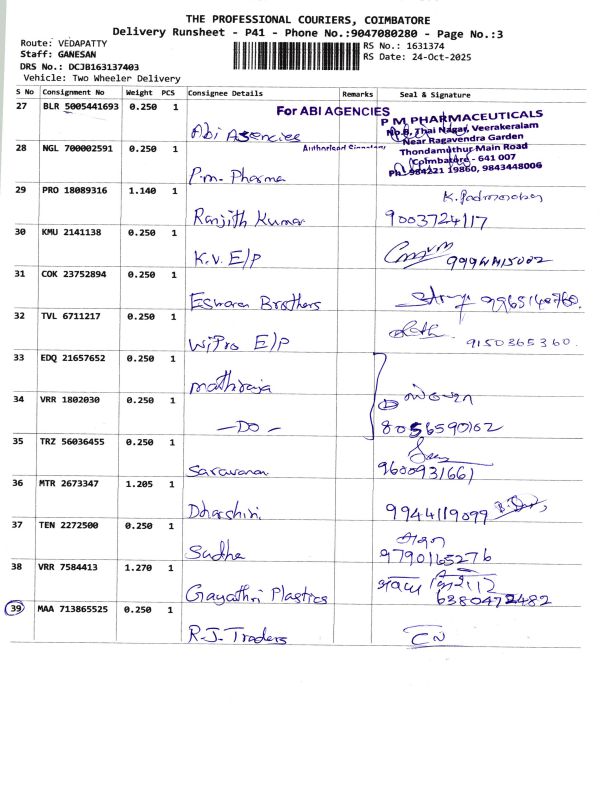 THE PROFESSIONAL COURIERS, COIMBATORE
Delivery Runsheet - P41 - Phone No.:9047080280 - Page No.:3
Route: VEDAPATTY
RS No.: 1631374
Staff: GANESAN
RS Date: 24-Oct-2025
DRS No.: DCJB163137403
Vehicle: Two Wheeler Delivery
S No Consignment No Weight PCS Consignee Details Remarks Seal & Signature
27 BLR 5005441693 0.250 1 Abi Agencies
For ABI AGENCIES
Authorised Signatory
P M PHARMACEUTICALS
No.8, Thai Nagar, Veerakeralam
Near Ragavendra Garden
Thondamuthur Main Road
Coimbatore - 641 007
Ph: 984221 19860, 9843448006
28 NGL 700002591 0.250 1 P.m. Pharma
29 PRO 18089316 1.140 1 Ranjith Kumar
9003724117
30 KMU 2141138 0.250 1 K.V. E/P
31 COK 23752894 0.250 1 Eswaran Brothers
32 TVL 6711217 0.250 1 WiPro E/P 9150365360.
33 EDQ 21657652 0.250 1 mathiraja
34 VRR 1802030 0.250 1 —DO—
8056590102
35 TRZ 56036455 0.250 1 Saravanan
9600931661
36 MTR 2673347 1.205 1 Dharshini 9944119099
37 TEN 2272500 0.250 1 Sudha
9790165276
38 VRR 7584413 1.270 1 Gayathri Plastics
6380472482
39 MAA 713865525 0.250 1 R.J. Traders CN